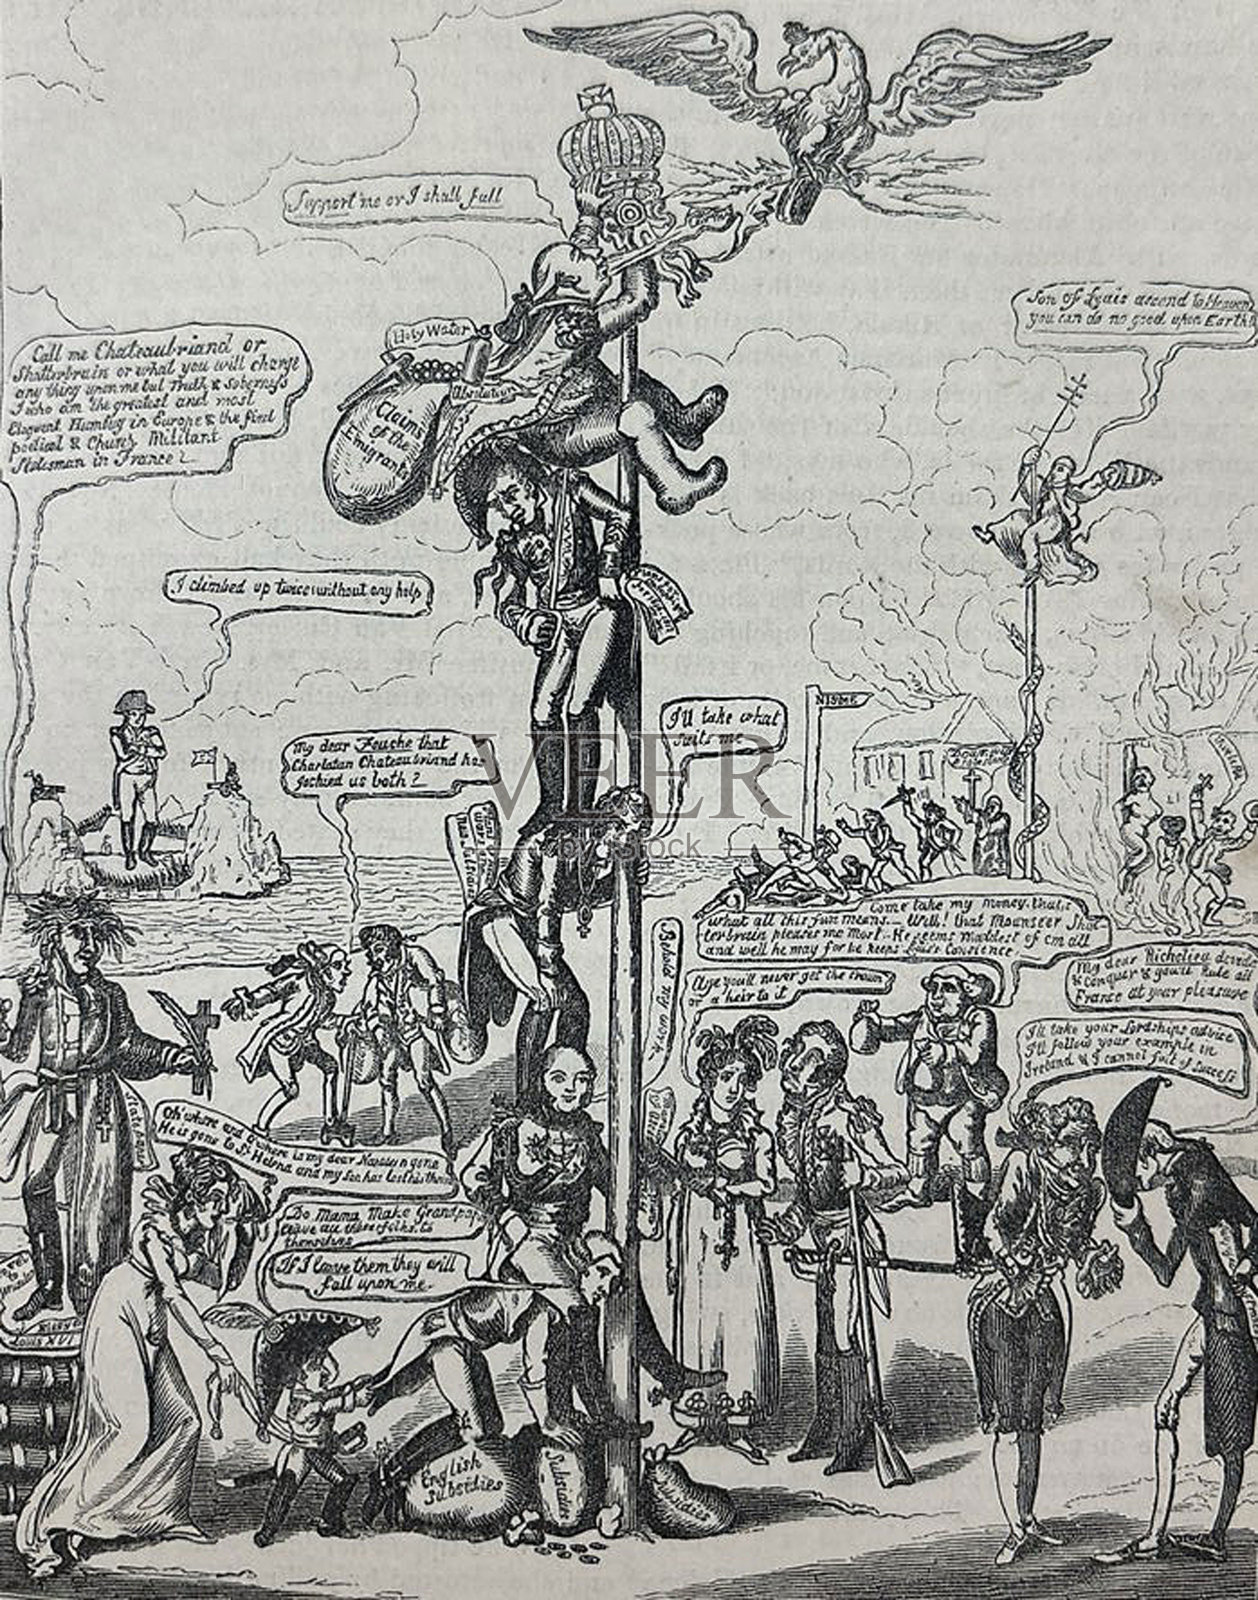 Support me or I shall fall
Holy Water
Claims
of the
Emigrants
Son of Louis ascend to Heaven
you can do no good upon Earth
Call me Chateaubriand or
Shatterbrain or what you will charge
any thing upon me but Truth & Soberness
I who am the greatest and most
Eloquent Humbug in Europe & the first
poetical & Church Militant
Statesman in France
I climbed up twice without any help
My dear Fouche that
Charlatan Chateaubriand has
jockied us both?
I'll take what
suits me
NISME
VEER
stock
Come take my money. that's
what all this fun means. Well! that Mounseer Shat
terbrain pleases me most. He seems maddest of em all
and well he may for he keeps Louis's Consience
Aye you'll never get the crown
or a heir to it
My dear Richelieu divide
& conquer & you'll Rule all
France at your pleasure
I'll take your Lordships advice
I'll follow your example in
Ireland & I cannot fail of success
Oh where and O where is my dear Nap gone
He is gone to St Helena and my son has lost his throne
Do Mama Make Grandpapa
leave all these folks to
themselves
If I leave them they will
fall upon me
Louis XVI
English
Subsidies
Subsidies
Subsidies